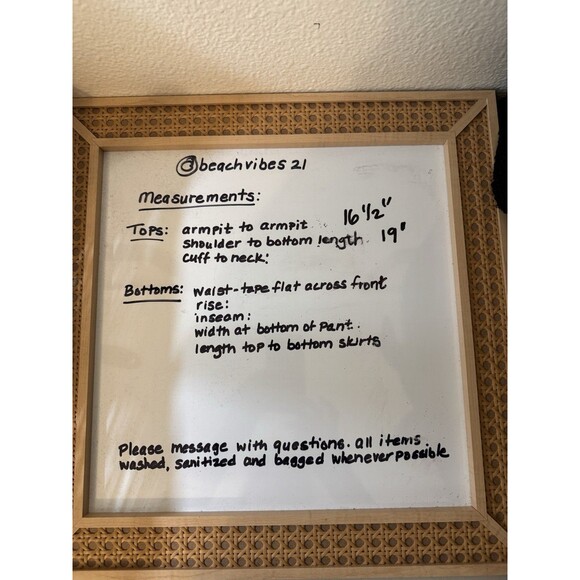 @beachvibes21
Measurements:
Tops: armpit to armpit 16 1/2"
shoulder to bottom length 19"
cuff to neck:
Bottoms: waist-tape flat across front
rise:
inseam:
width at bottom of pant.
length top to bottom skirts
Please message with questions. all items
washed, sanitized and bagged whenever possible